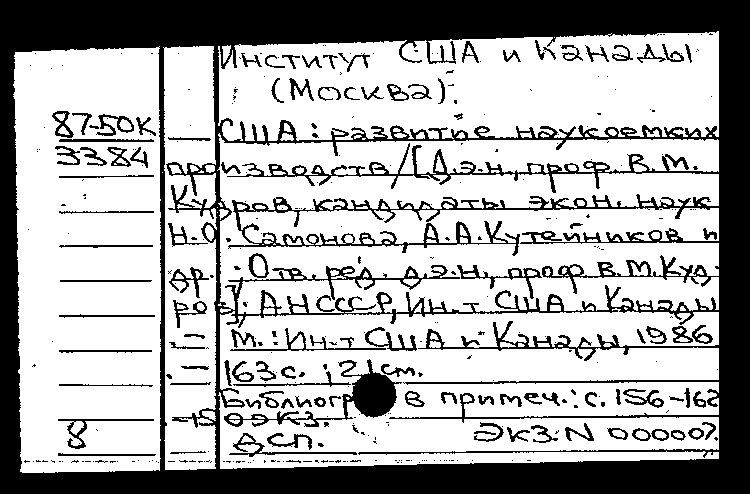 Институт США и Канады
(Москва).
87-50К
США : развитие наукоемких
3384
производств / [Д.э.н., проф. В.М.
Кудров, кандидаты экон. наук
Н.О. Самонова, А.А. Кутейников и
др. ; Отв. ред. д.э.н., проф В.М. Куд-
ров]; АН СССР, Ин-т США и Канады
. — М. : Ин-т США и Канады, 1986
. — 163 с. ; 21 см.
Библиогр в примеч.: с. 156-162
-150 экз.
8 ДСП. Экз. N 000007.